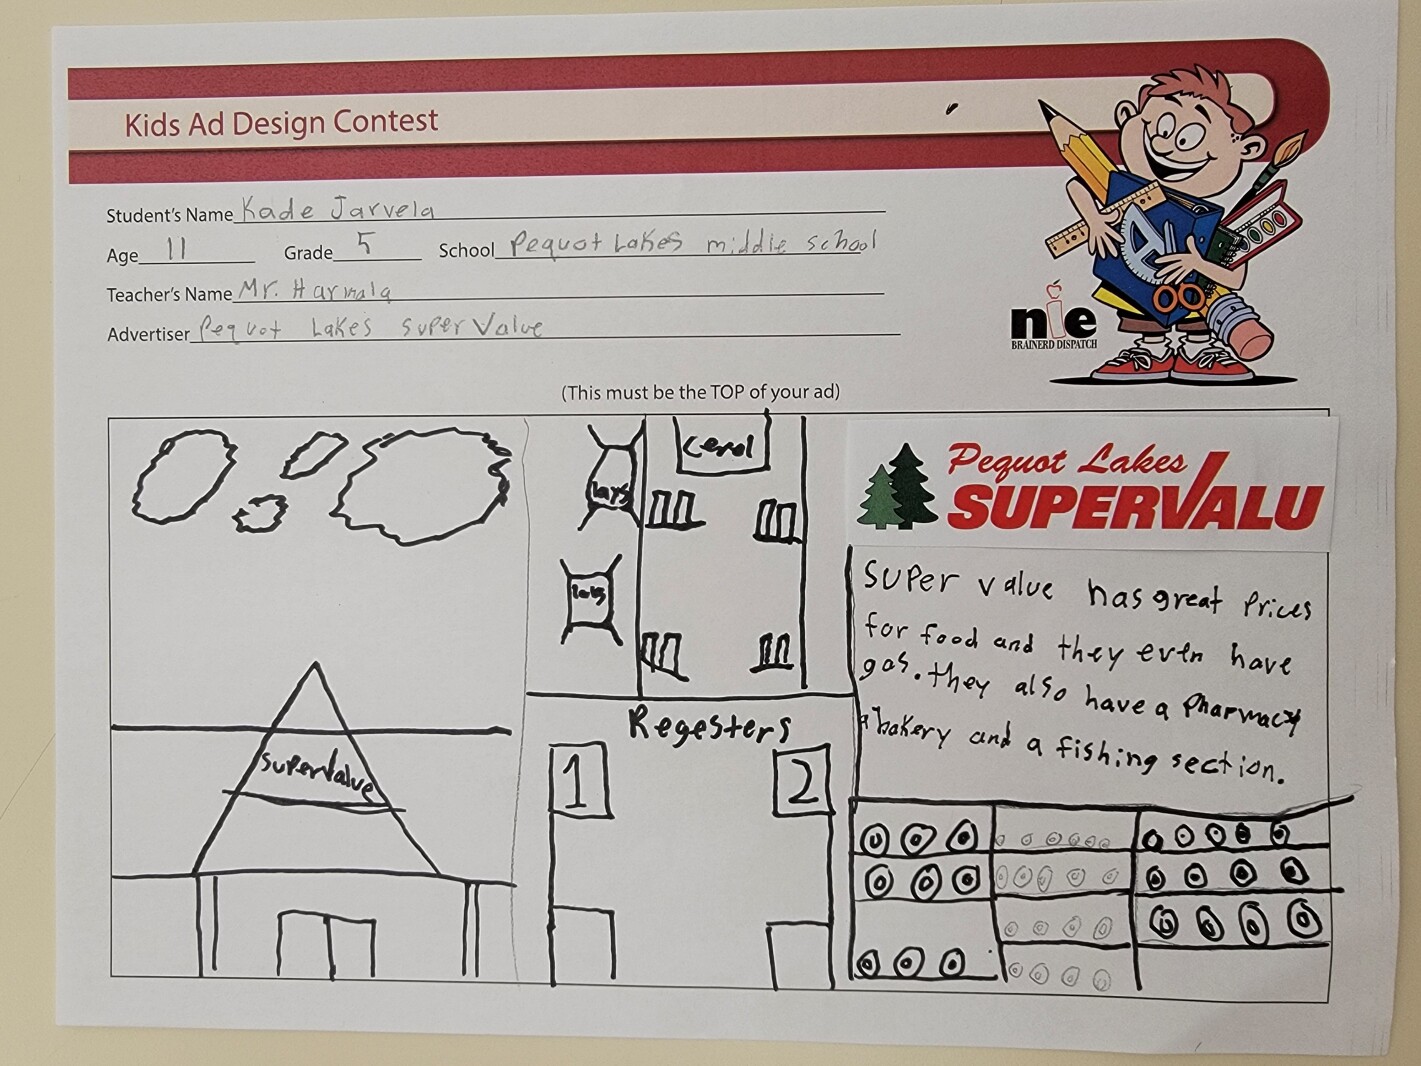 Kids Ad Design Contest
Student's Name Kade Jarvela
Age 11 Grade 5 School Pequot Lakes middle school
Teacher's Name Mr. Harmala
Advertiser Pequot Lakes super Value
nie
BRAINERD DISPATCH
(This must be the TOP of your ad)
Supervalue
lays
cerol
lays
Regesters
1 2
Pequot Lakes
SUPERVALU
super value has great Prices
for food and they even have
gas. they also have a Pharmacy
a bakery and a fishing section.